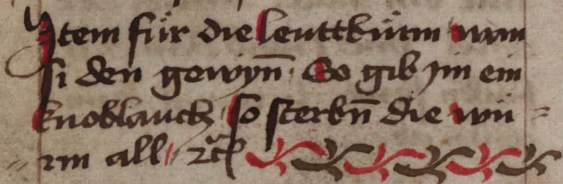 Item für die leuttbürm wan
si den gewyn̄ · So gib jm ein
knoblauch so sterbn̄ die wü=
=rm all · ⁊c